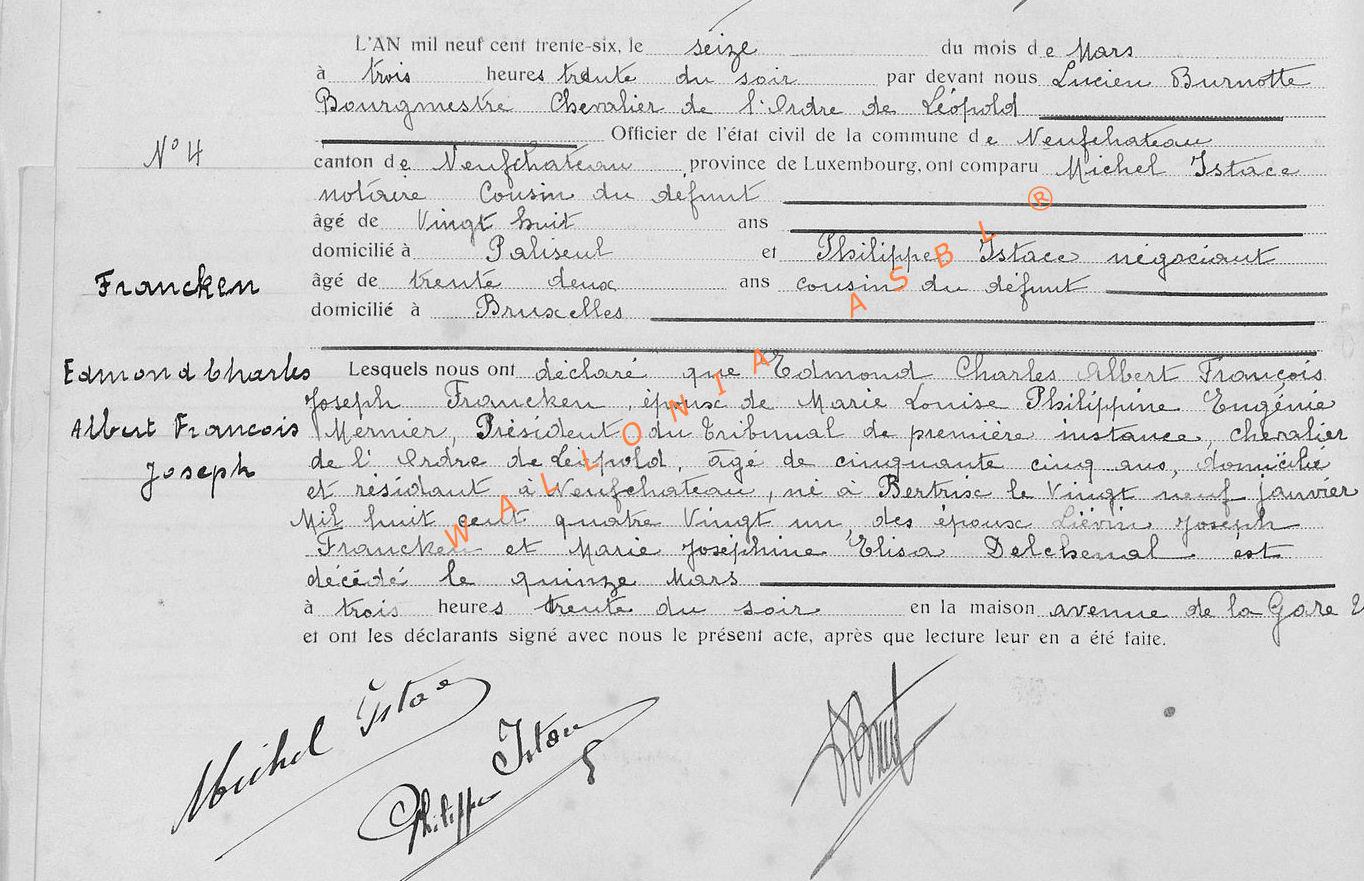 L'AN mil neuf cent trente-six, le seize du mois de Mars
à trois heures trente du soir par devant nous Lucien Burnotte
Bourgmestre Chevalier de l'Ordre de Léopold
Officier de l'état civil de la commune de Neufchateau
N° 4
canton de Neufchateau province de Luxembourg, ont comparu Michel Istace
notaire Cousin du défunt
âgé de Vingt huit ans
domicilié à Paliseul et Philippe Istace négociant
Francken
âgé de trente deux ans cousin du défunt
domicilié à Bruxelles
Edmond Charles
Albert Francois
Joseph
Lesquels nous ont déclaré que Edmond Charles Albert François
Joseph Francken, époux de Marie Louise Philippine Eugénie
Mernier, Président du Tribunal de première instance, chevalier
de l'Ordre de Léopold, âgé de cinquante cinq ans, domicilié
et résidant à Neufchateau, né à Bertrix le Vingt neuf janvier
Mil huit cent quatre Vingt un, des époux Liévin Joseph
Francken et Marie Joséphine Elisa Delchenal est
décédé le quinze Mars
à trois heures trente du soir en la maison avenue de la Gare
et ont les déclarants signé avec nous le présent acte, après que lecture leur en a été faite.
Michel Istace
Philippe Istace
WALLONIA ASBL ®